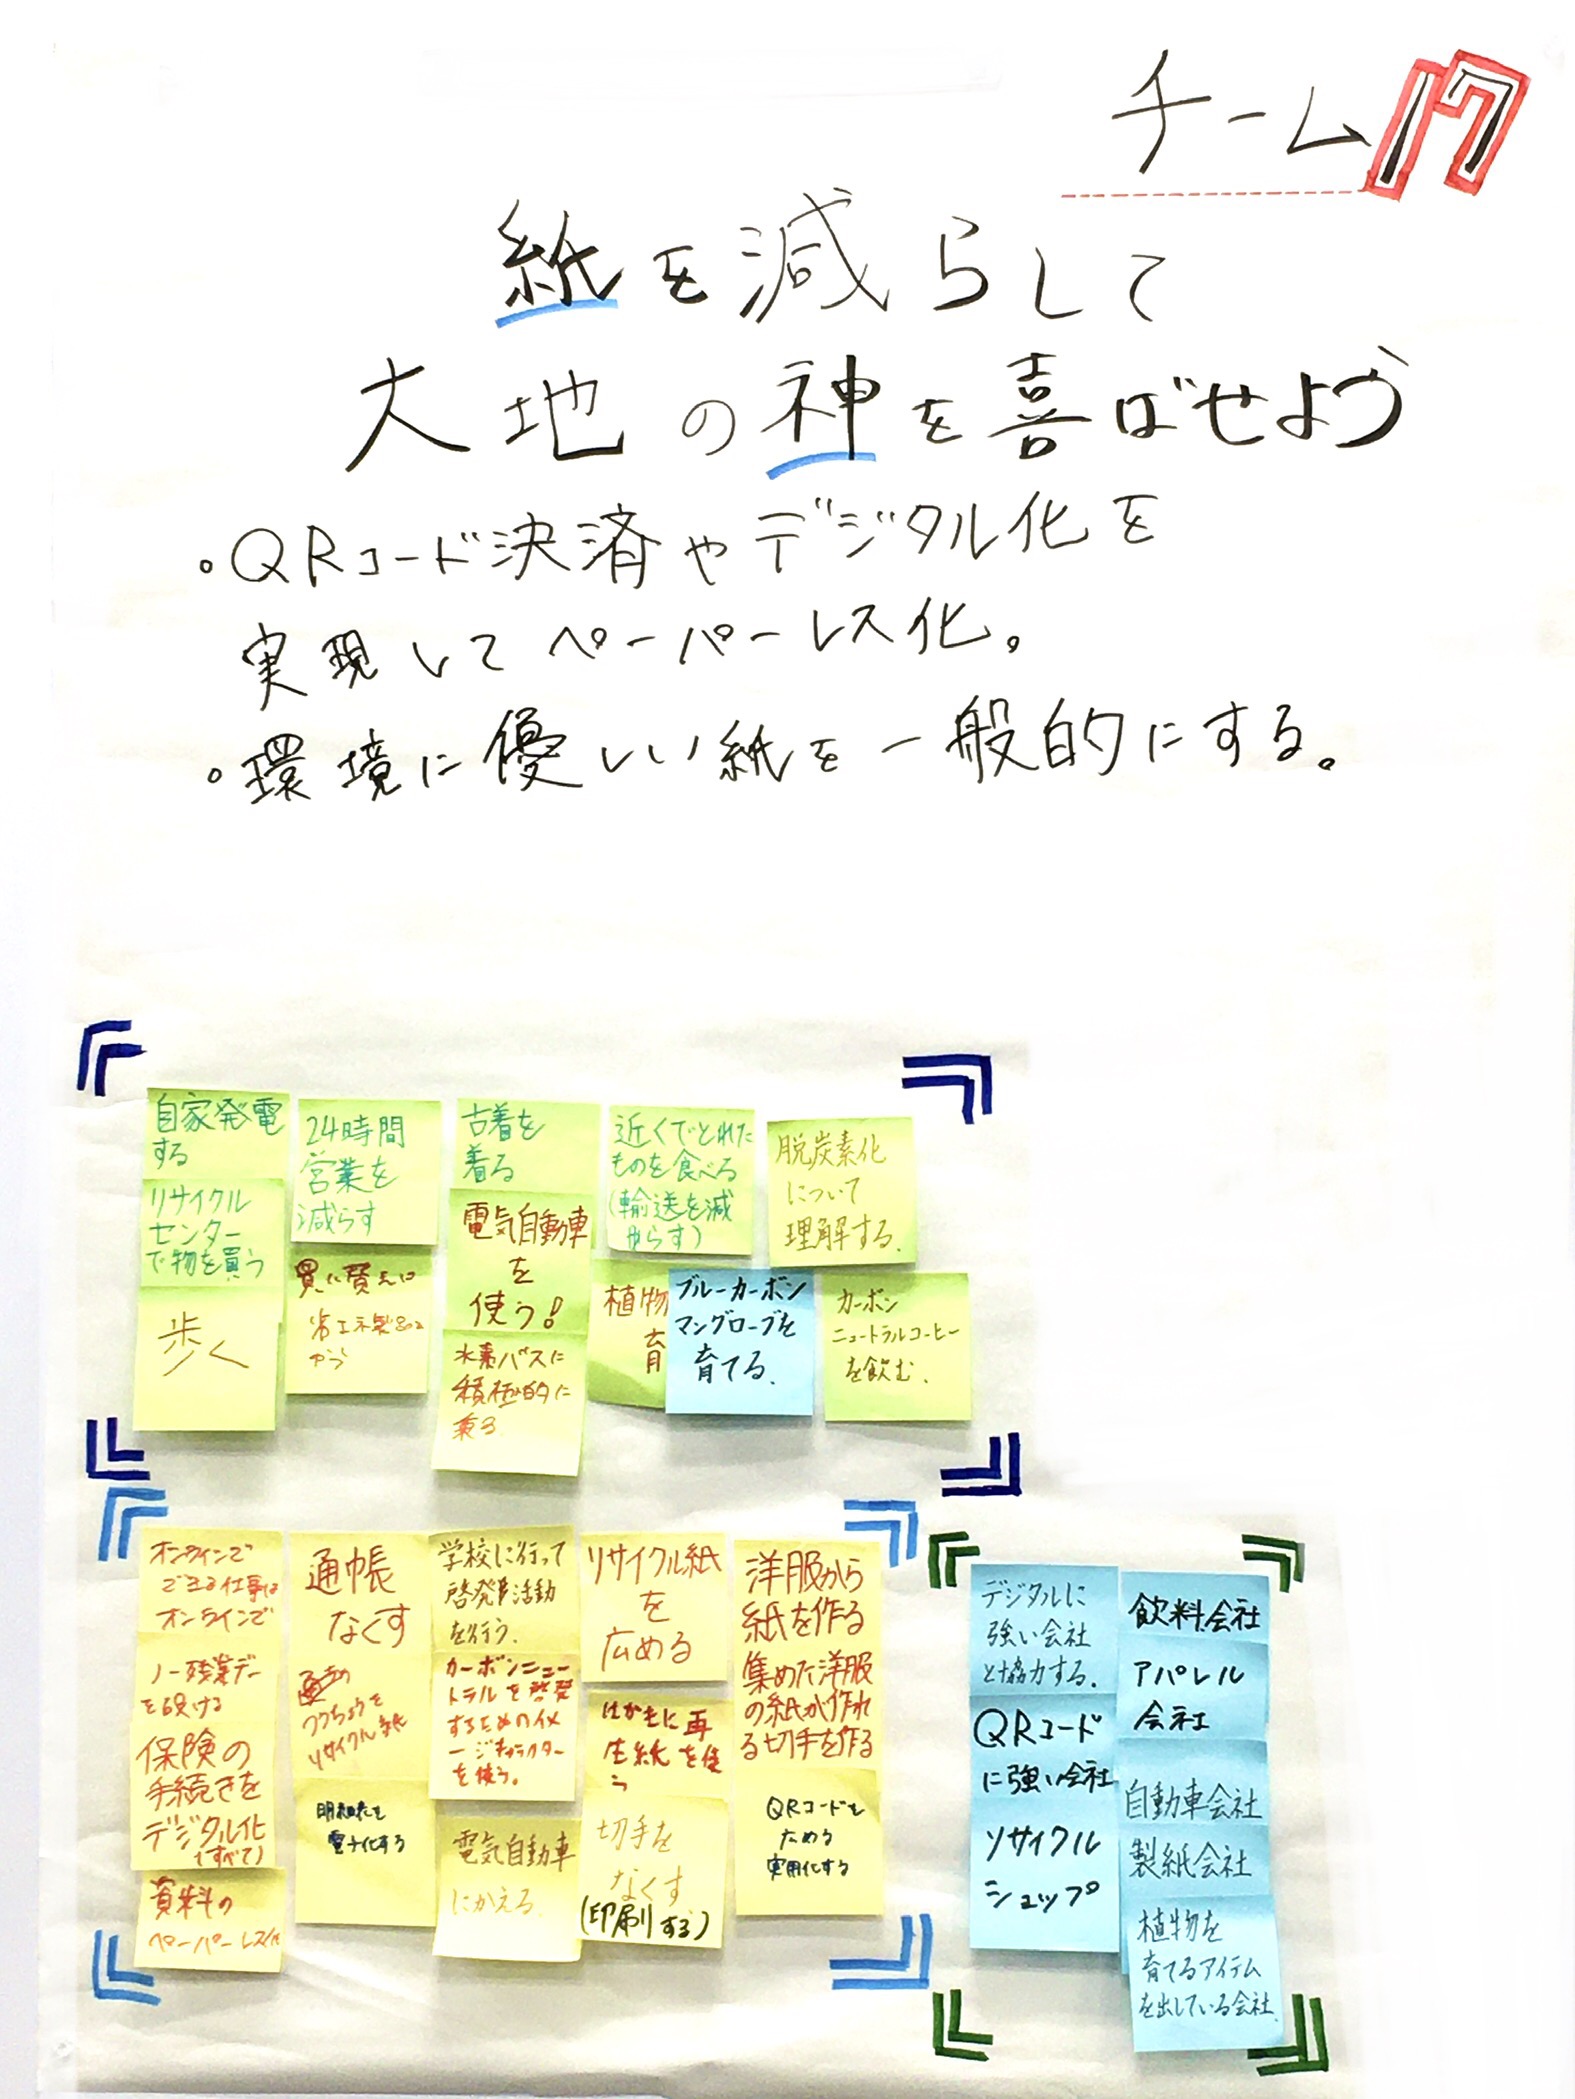 チーム17
紙を減らして
大地の神を喜ばせよう
・QRコード決済やデジタル化を
実現してペーパーレス化。
・環境に優しい紙を一般的にする。
自家発電
する
リサイクル
センター
で物を買う
歩く
24時間
営業を
減らす
買い替えは
省エネ製品に
古着を
着る
電気自動車
を
使う!
水素バスに
積極的に
乗る
近くでとれた
ものを食べる
(輸送を減
らす)
植物
育
ブルーカーボン
マングローブを
育てる.
脱炭素化
について
理解する.
カーボン
ニュートラルコーヒー
を飲む.
オンラインで
できる仕事は
オンラインで
ノー残業デー
を設ける
保険の
手続きを
デジタル化
(すべて)
資料の
ペーパーレス化
通帳
なくす
つうちょうを
リサイクル紙
明細を
電子化する
学校に行って
啓発活動
を行う.
カーボンニュー
トラルを啓発
するためのイメ
ージキャラクター
を使う。
電気自動車
にかえる.
リサイクル紙
を
広める
はがきに再
生紙を使
う
切手を
なくす
(印刷する)
洋服から
紙を作る
集めた洋服
の紙が作れ
る切手を作る
QRコードを
ためる
実用化する
デジタルに
強い会社
と協力する.
QRコード
に強い会社
リサイクル
ショップ
飲料会社
アパレル
会社
自動車会社
製紙会社
植物を
育てるアイテム
を出している会社.